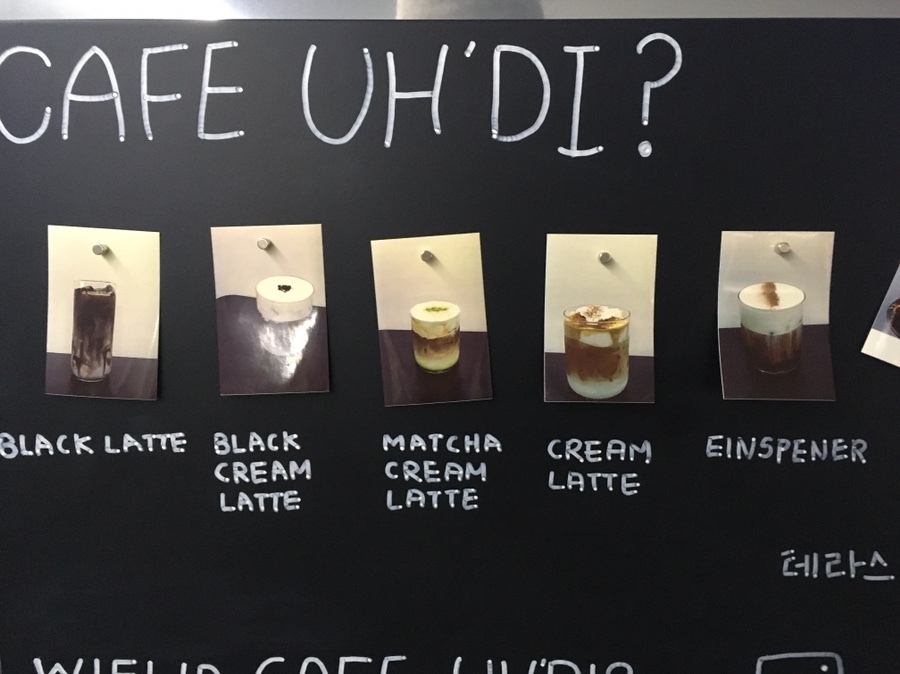 CAFE UH'DI?
BLACK LATTE
BLACK
CREAM
LATTE
MATCHA
CREAM
LATTE
CREAM
LATTE
EINSPENER
테라스
CAFE UH'DI?